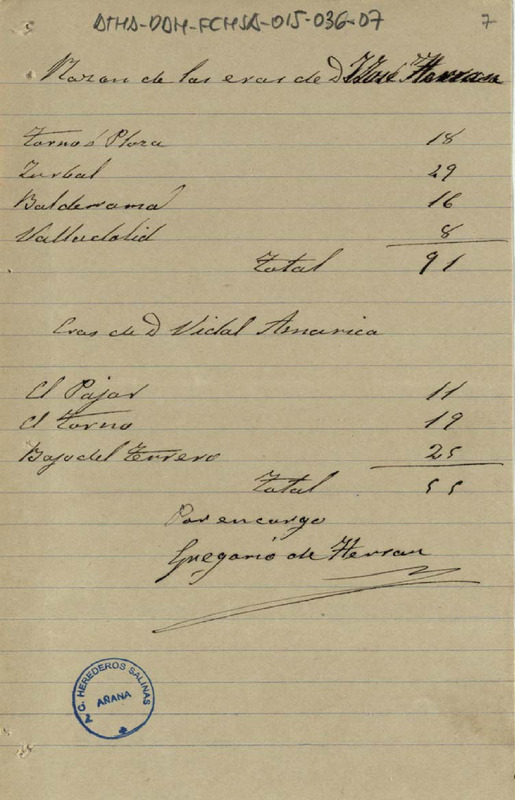 ATHA-DDM-FCMSA-015-036-07
7
Razon de las eras de D José Herran
Tornos Plaza 18
Zurbal 29
Balderama 16
Valladolid 8
Total 91
Eras de D Vidal Amarica
El Pajar 11
El torno 19
Bajo del terrero 25
Total 55
Por encargo
Gregorio de Herran
C. HEREDEROS SALINAS
AÑANA